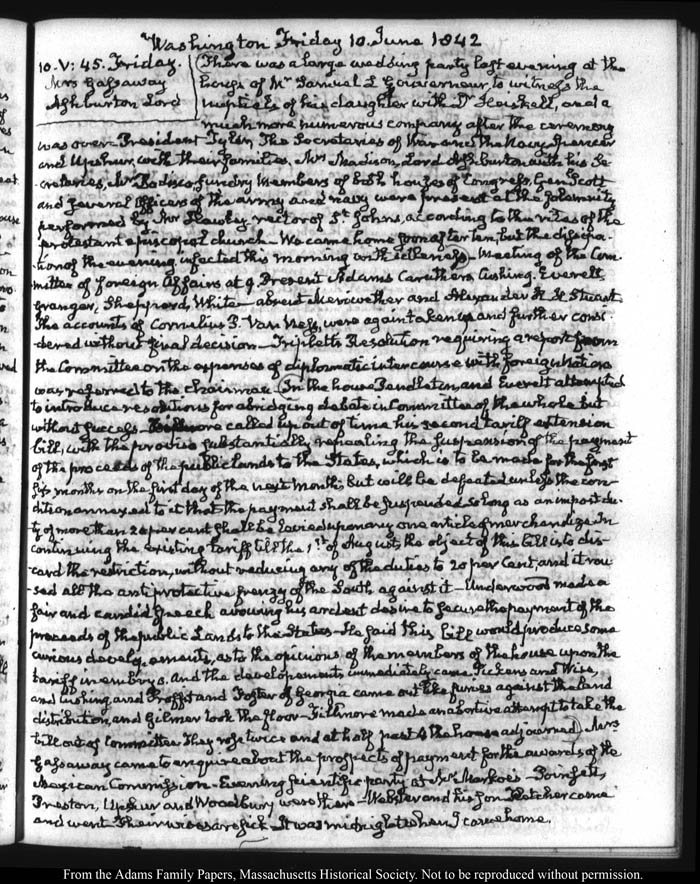 Washington Friday 10. June 1842
10. V: 45. Friday.
Mrs Gassaway
Ashburton Lord
There was a large wedding party last evening at the
house of Mr Samuel L Gouverneur to witness the
nuptials of his daughter with Dr Heiskell, and a
much more numerous company after the ceremony
was over. President Tyler, The Secretaries of War and the Navy Spencer
and Upshur, with their families, Mrs Madison, Lord Ashburton with his Se-
cretaries, Mr Bodisco, sundry members of both houses of Congress, Genl Scott
and several Officers of the army and navy were present at the solemnity
performed by Mr Hawley rector of St Johns, according to the rites of the
protestant episcopal church— We came home soon after ten, but the dissipa-
tion of the evening infected this morning with idleness— Meeting of the Com-
mittee of Foreign Affairs at 9. Present Adams Caruthers, Cushing, Everett,
Granger, Shepperd, White— absent Meriwether and Alexander H. H. Stuart.
The accounts of Cornelius P. Van Ness, were again taken up and further consi-
dered without final decision— Tripletts Resolution requiring a report from
the Committee on the expenses of diplomatic intercourse with foreign Nations
was referred to the chairman (In the house Pendleton, and Everett attempted
to introduce resolutions for abridging debate in Committee of the whole but
without success. Fillmore called up out of time his second tariff extension
bill, with the proviso substantially repealing the suspension of the payment
of the proceeds of the public lands to the States, which is to be made for the first
six months on the first day of the next month: but will be defeated unless the con-
dition annexed to it that the payment shall be suspended so long as an impost du-
ty of more than 20 per cent shall be levied upon any one article of merchandize. In
continuing the existing tariff till the 1st of August, the object of this bill is to dis-
card the restriction, without reducing any of the duties to 20 per Cent, and it rou-
sed all the anti protective frenzy of the South against it— Underwood made a
fair and candid speech avowing his ardent desire to secure the payment of the
proceeds of the public Lands to the States— He said this bill would produce some
curious developements, as to the opinions of the members of the house upon the
tariff in embryo. and the developements immediately came. Pickens and Wise,
and Cushing, and Proffit and Foster of Georgia came out like furies against the land
distribution, and Gilmer took the floor— Fillmore made an abortive attempt to take the
bill out of Committee They rose twice and at half past 4 the house adjourned) Mrs
Gassaway came to enquire about the prospects of payment for the awards of the
Mexican Commission— Evening scientific party at Mr Markoe's— Poinsett,
Preston, Upshur and Woodbury were there— Webster and his son Fletcher came
and went. Their wives are sick It was midnight when I came home.
From the Adams Family Papers, Massachusetts Historical Society. Not to be reproduced without permission.